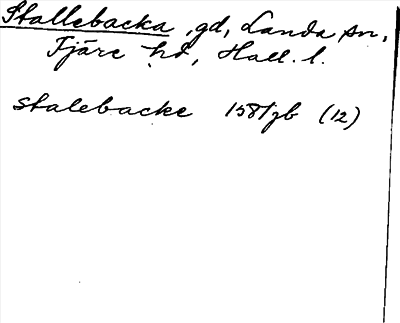 Stallebacka, gd, Landa sn,
Fjäre hd, Hall. l.
stalebacke 1581 jb (12)